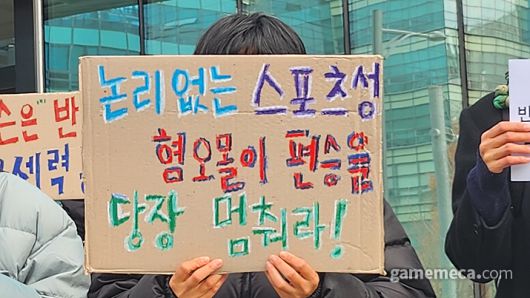 논리없는 스포츠성
혐오몰이 편승을
당장 멈춰라!
손은" 반
세력
반
gamemeca.com